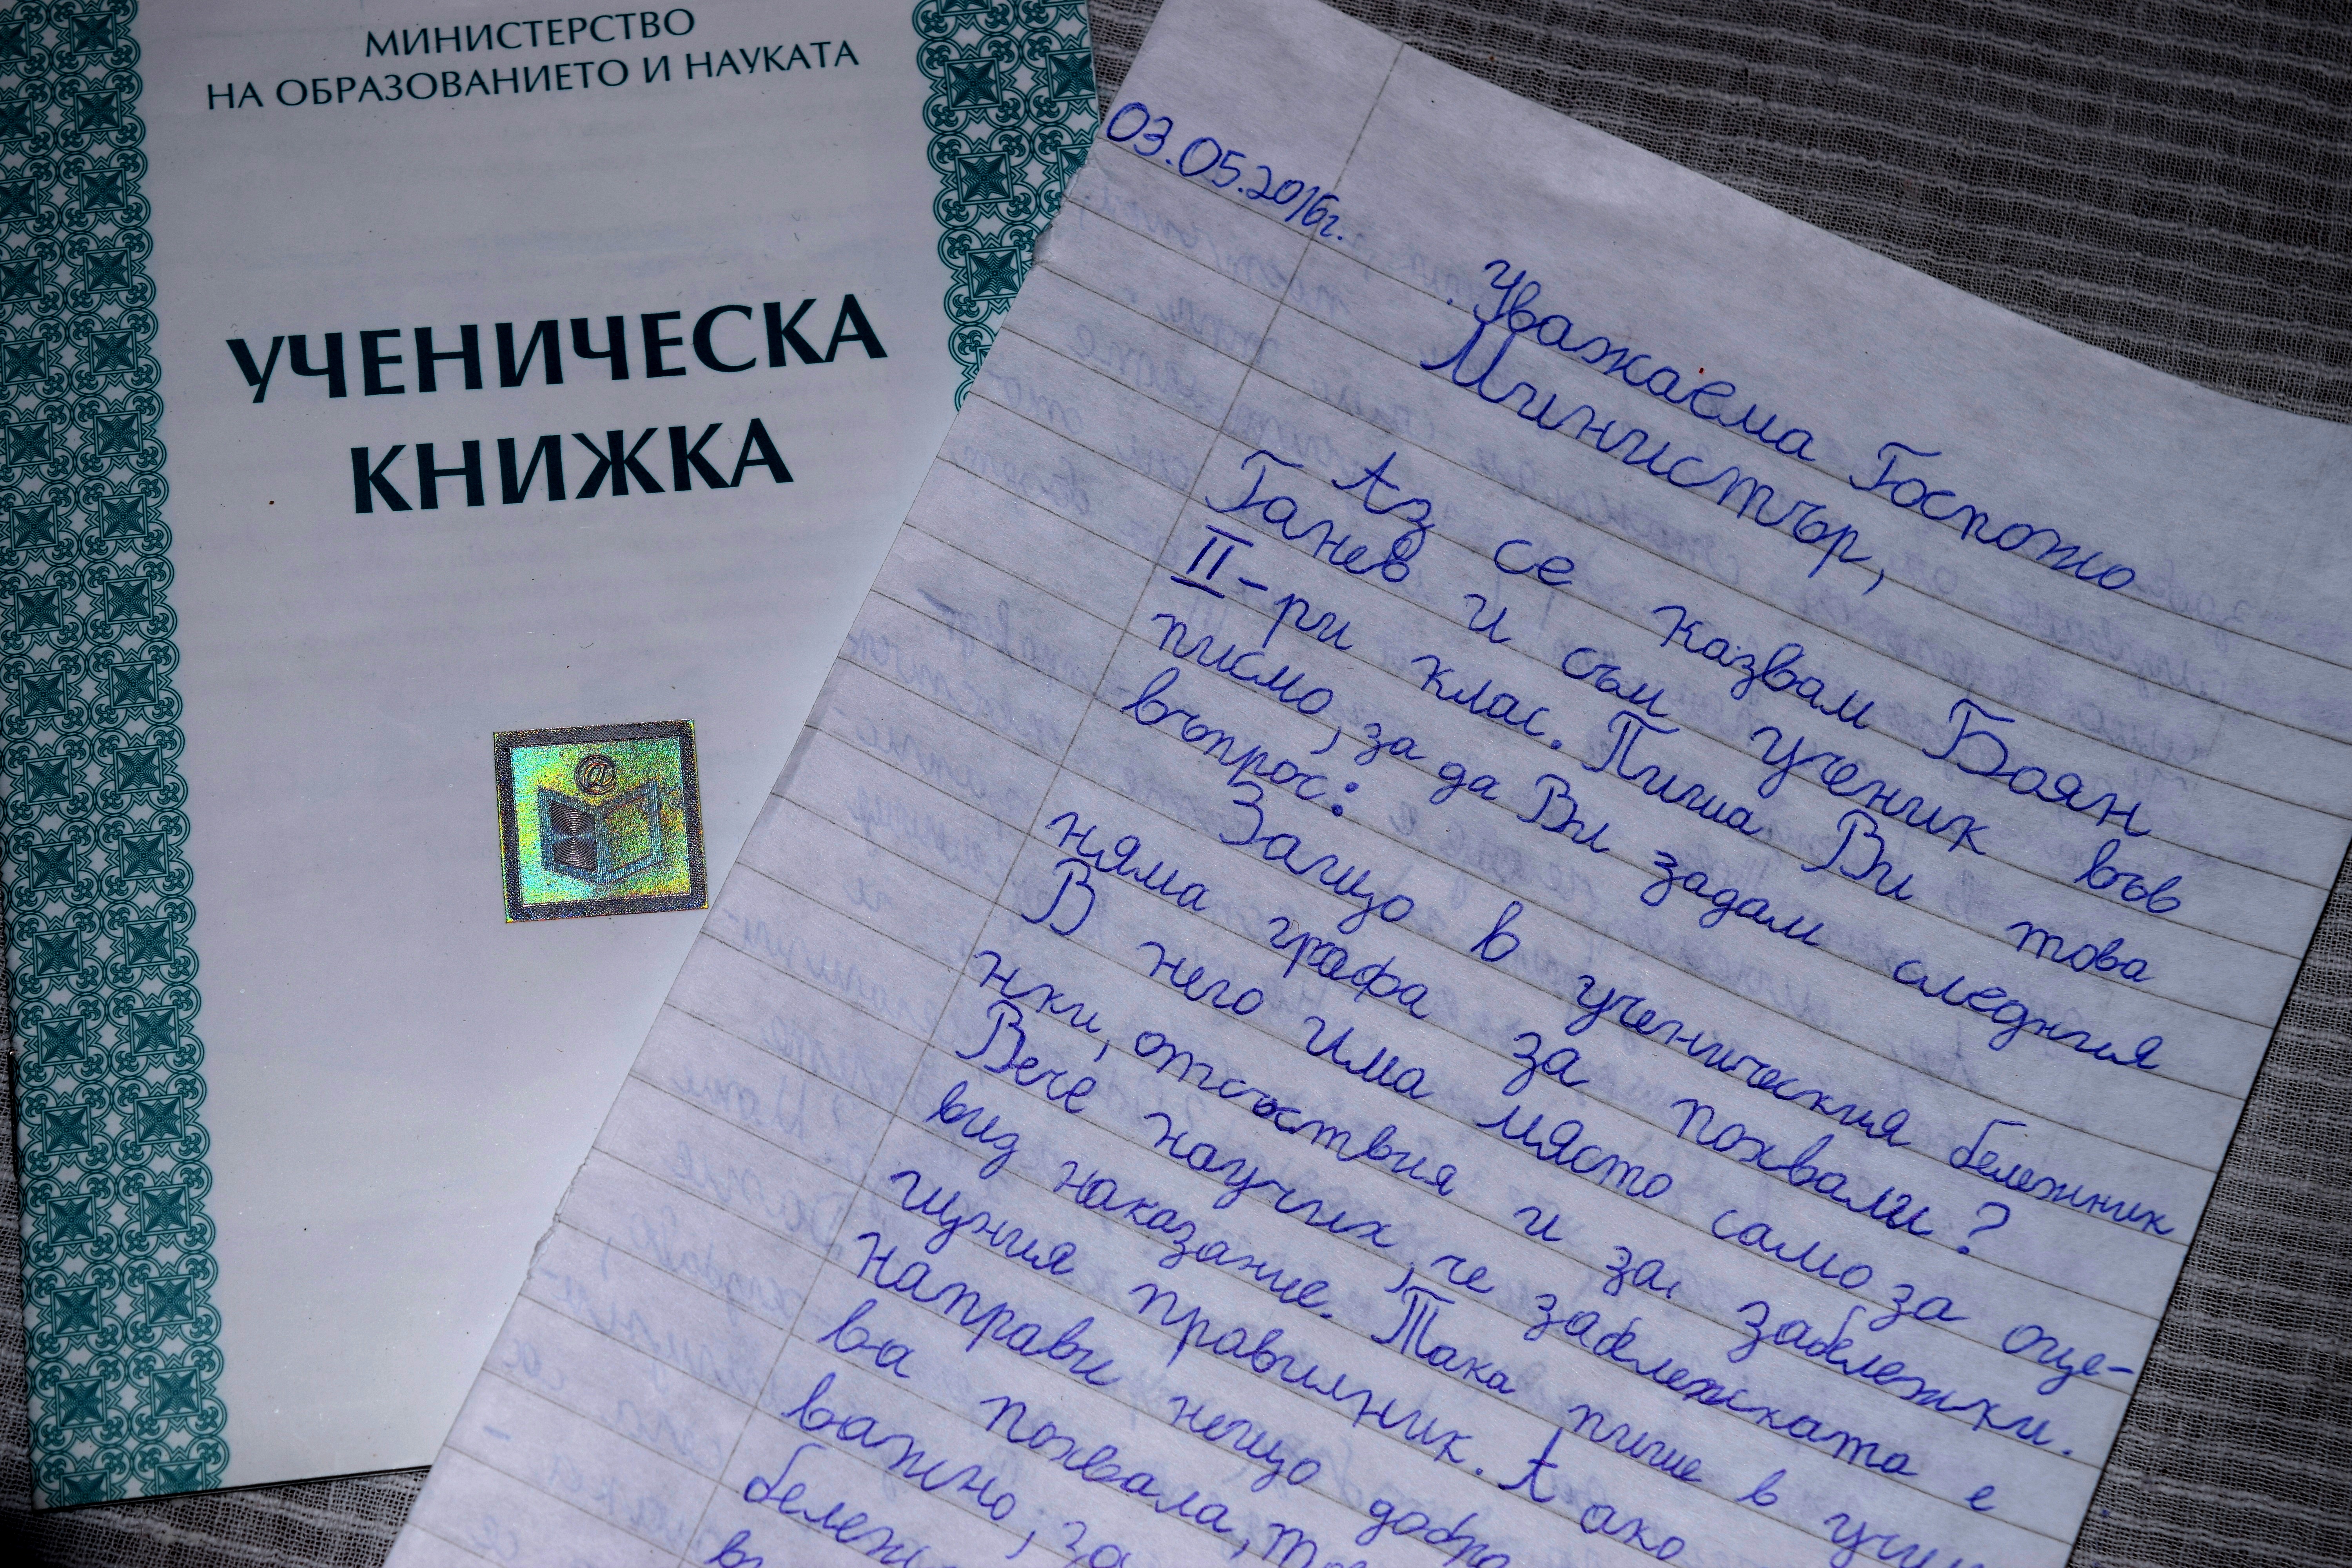 МИНИСТЕРСТВО
НА ОБРАЗОВАНИЕТО И НАУКАТА
УЧЕНИЧЕСКА
КНИЖКА
@
03.05.2016г.
Уважаема Госпожо
Министър,
Аз се казвам Боян
Ганев и съм ученик във
II-ри клас. Пиша Ви това
писмо, за да Ви задам следния
въпрос:
Защо в ученическия бележник
няма графа за похвали?
В него има място само за оце-
нки, отсъствия и за забележки.
Вече научих, че забележката е
вид наказание. Така пише в учили
щния правилник. А ако
направи нещо добро
ва похвала,
важно, за